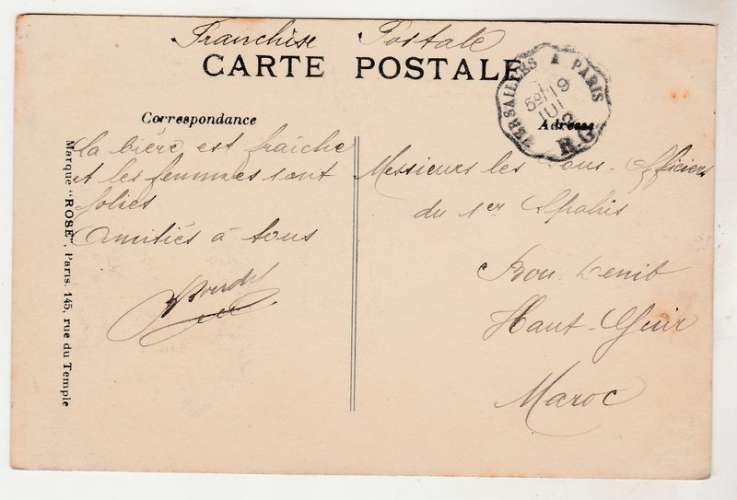 Franchise Postale
CARTE POSTALE
Correspondance
Adresse
VERSAILLES A PARIS
R.G.
La bière est fraîche
et les femmes sont
jolies
Amitiés à tous
Messieurs les Sous-Officiers
du 1er Spahis
Bou-Denib
Haut-Guir
Maroc
Marque "ROSE", Paris. 145, rue du Temple